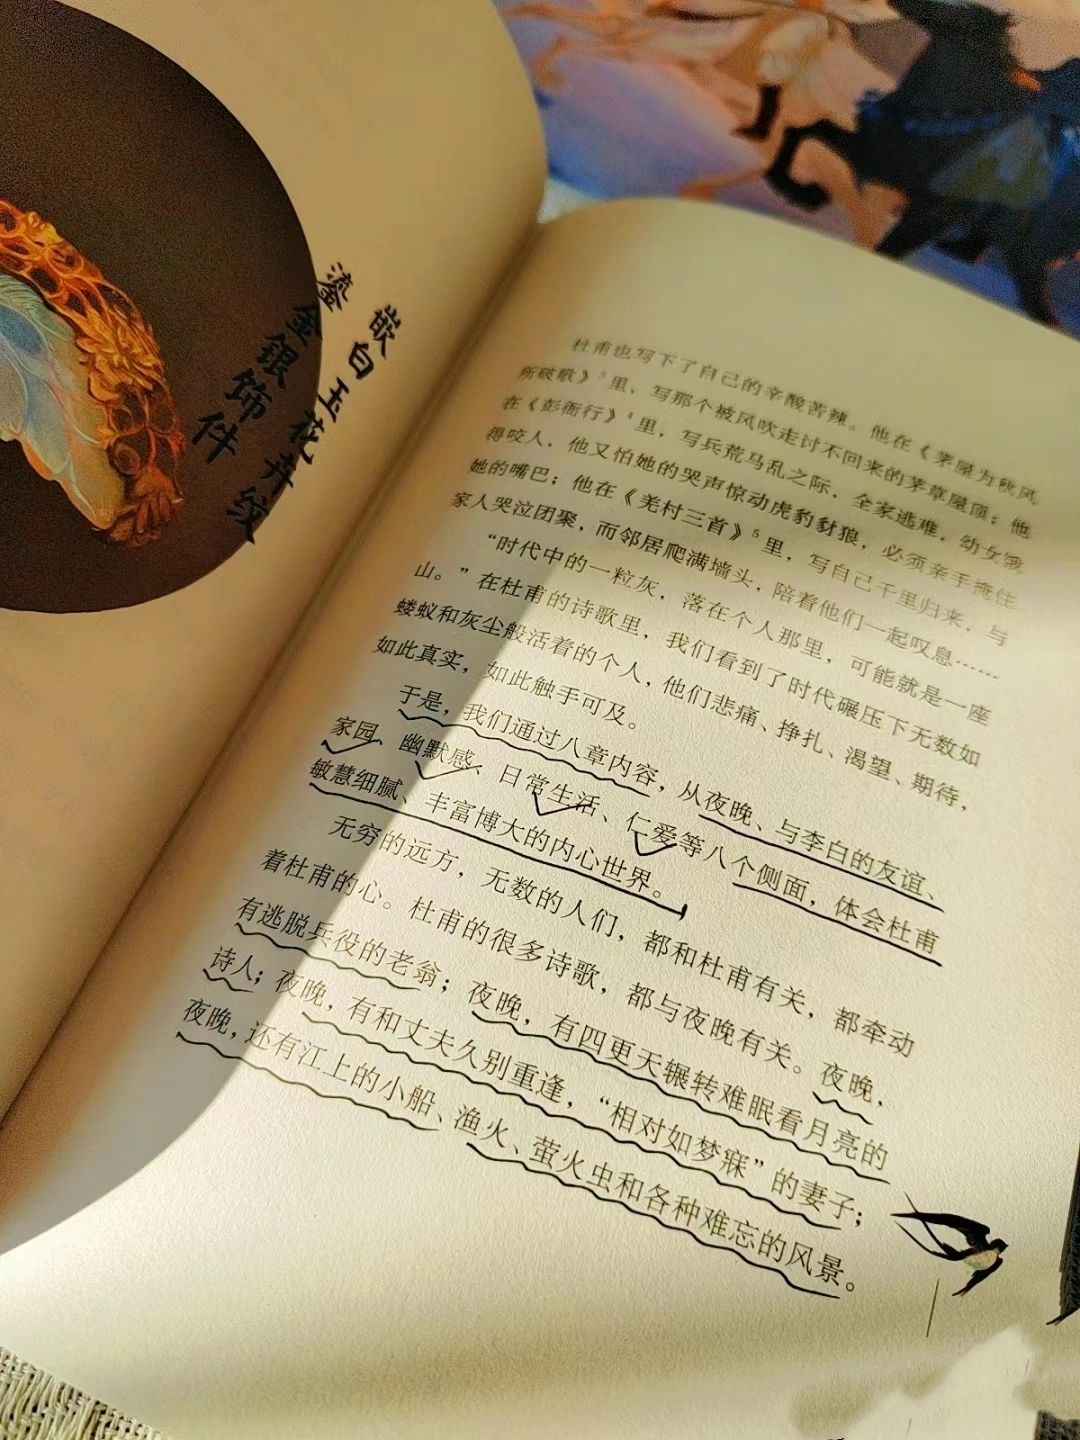 嵌白玉花卉纹
鎏金银饰件
杜甫也写下了自己的辛酸苦辣。他在《茅屋为秋风
所破歌》³里，写那个被风吹走讨不回来的茅草屋顶；他
在《彭衙行》⁴里，写兵荒马乱之际，全家逃难，幼女饿
得咬人，他又怕她的哭声惊动虎豹豺狼，必须亲手掩住
她的嘴巴；他在《羌村三首》⁵里，写自己千里归来，与
家人哭泣团聚，而邻居爬满墙头，陪着他们一起叹息……
“时代中的一粒灰，落在个人那里，可能就是一座
山。”在杜甫的诗歌里，我们看到了时代碾压下无数如
蝼蚁和灰尘般活着的个人，他们悲痛、挣扎、渴望、期待，
如此真实，如此触手可及。
于是，我们通过八章内容，从夜晚、与李白的友谊、
家园、幽默感、日常生活、仁爱等八个侧面，体会杜甫
敏慧细腻、丰富博大的内心世界。
无穷的远方，无数的人们，都和杜甫有关，都牵动
着杜甫的心。杜甫的很多诗歌，都与夜晚有关。夜晚，
有逃脱兵役的老翁；夜晚，有四更天辗转难眠看月亮的
诗人；夜晚，有和丈夫久别重逢，“相对如梦寐”的妻子；
夜晚，还有江上的小船、渔火、萤火虫和各种难忘的风景。